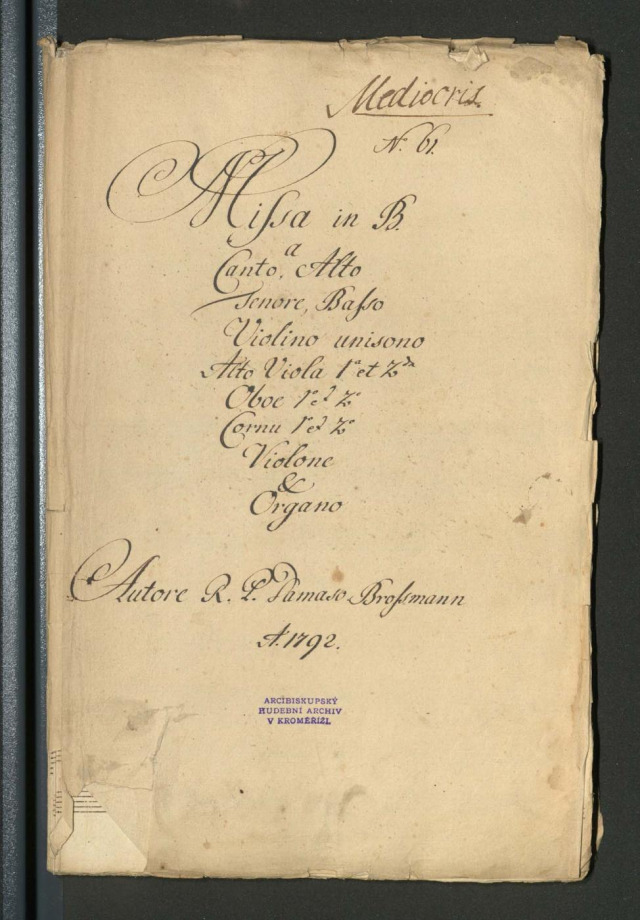 Mediocris.
No. 61.
Missa in B.
a
Canto, Alto
Tenore, Basso
Violino unisono
Alto Viola 1a et 2da
Oboe 1o et 2o
Cornu 1o et 2o
Violone
&
Organo
Autore R. P. Damaso Brossmann
A. 1792.
ARCIBISKUPSKÝ
HUDEBNÍ ARCHIV
V KROMĚŘÍŽI.